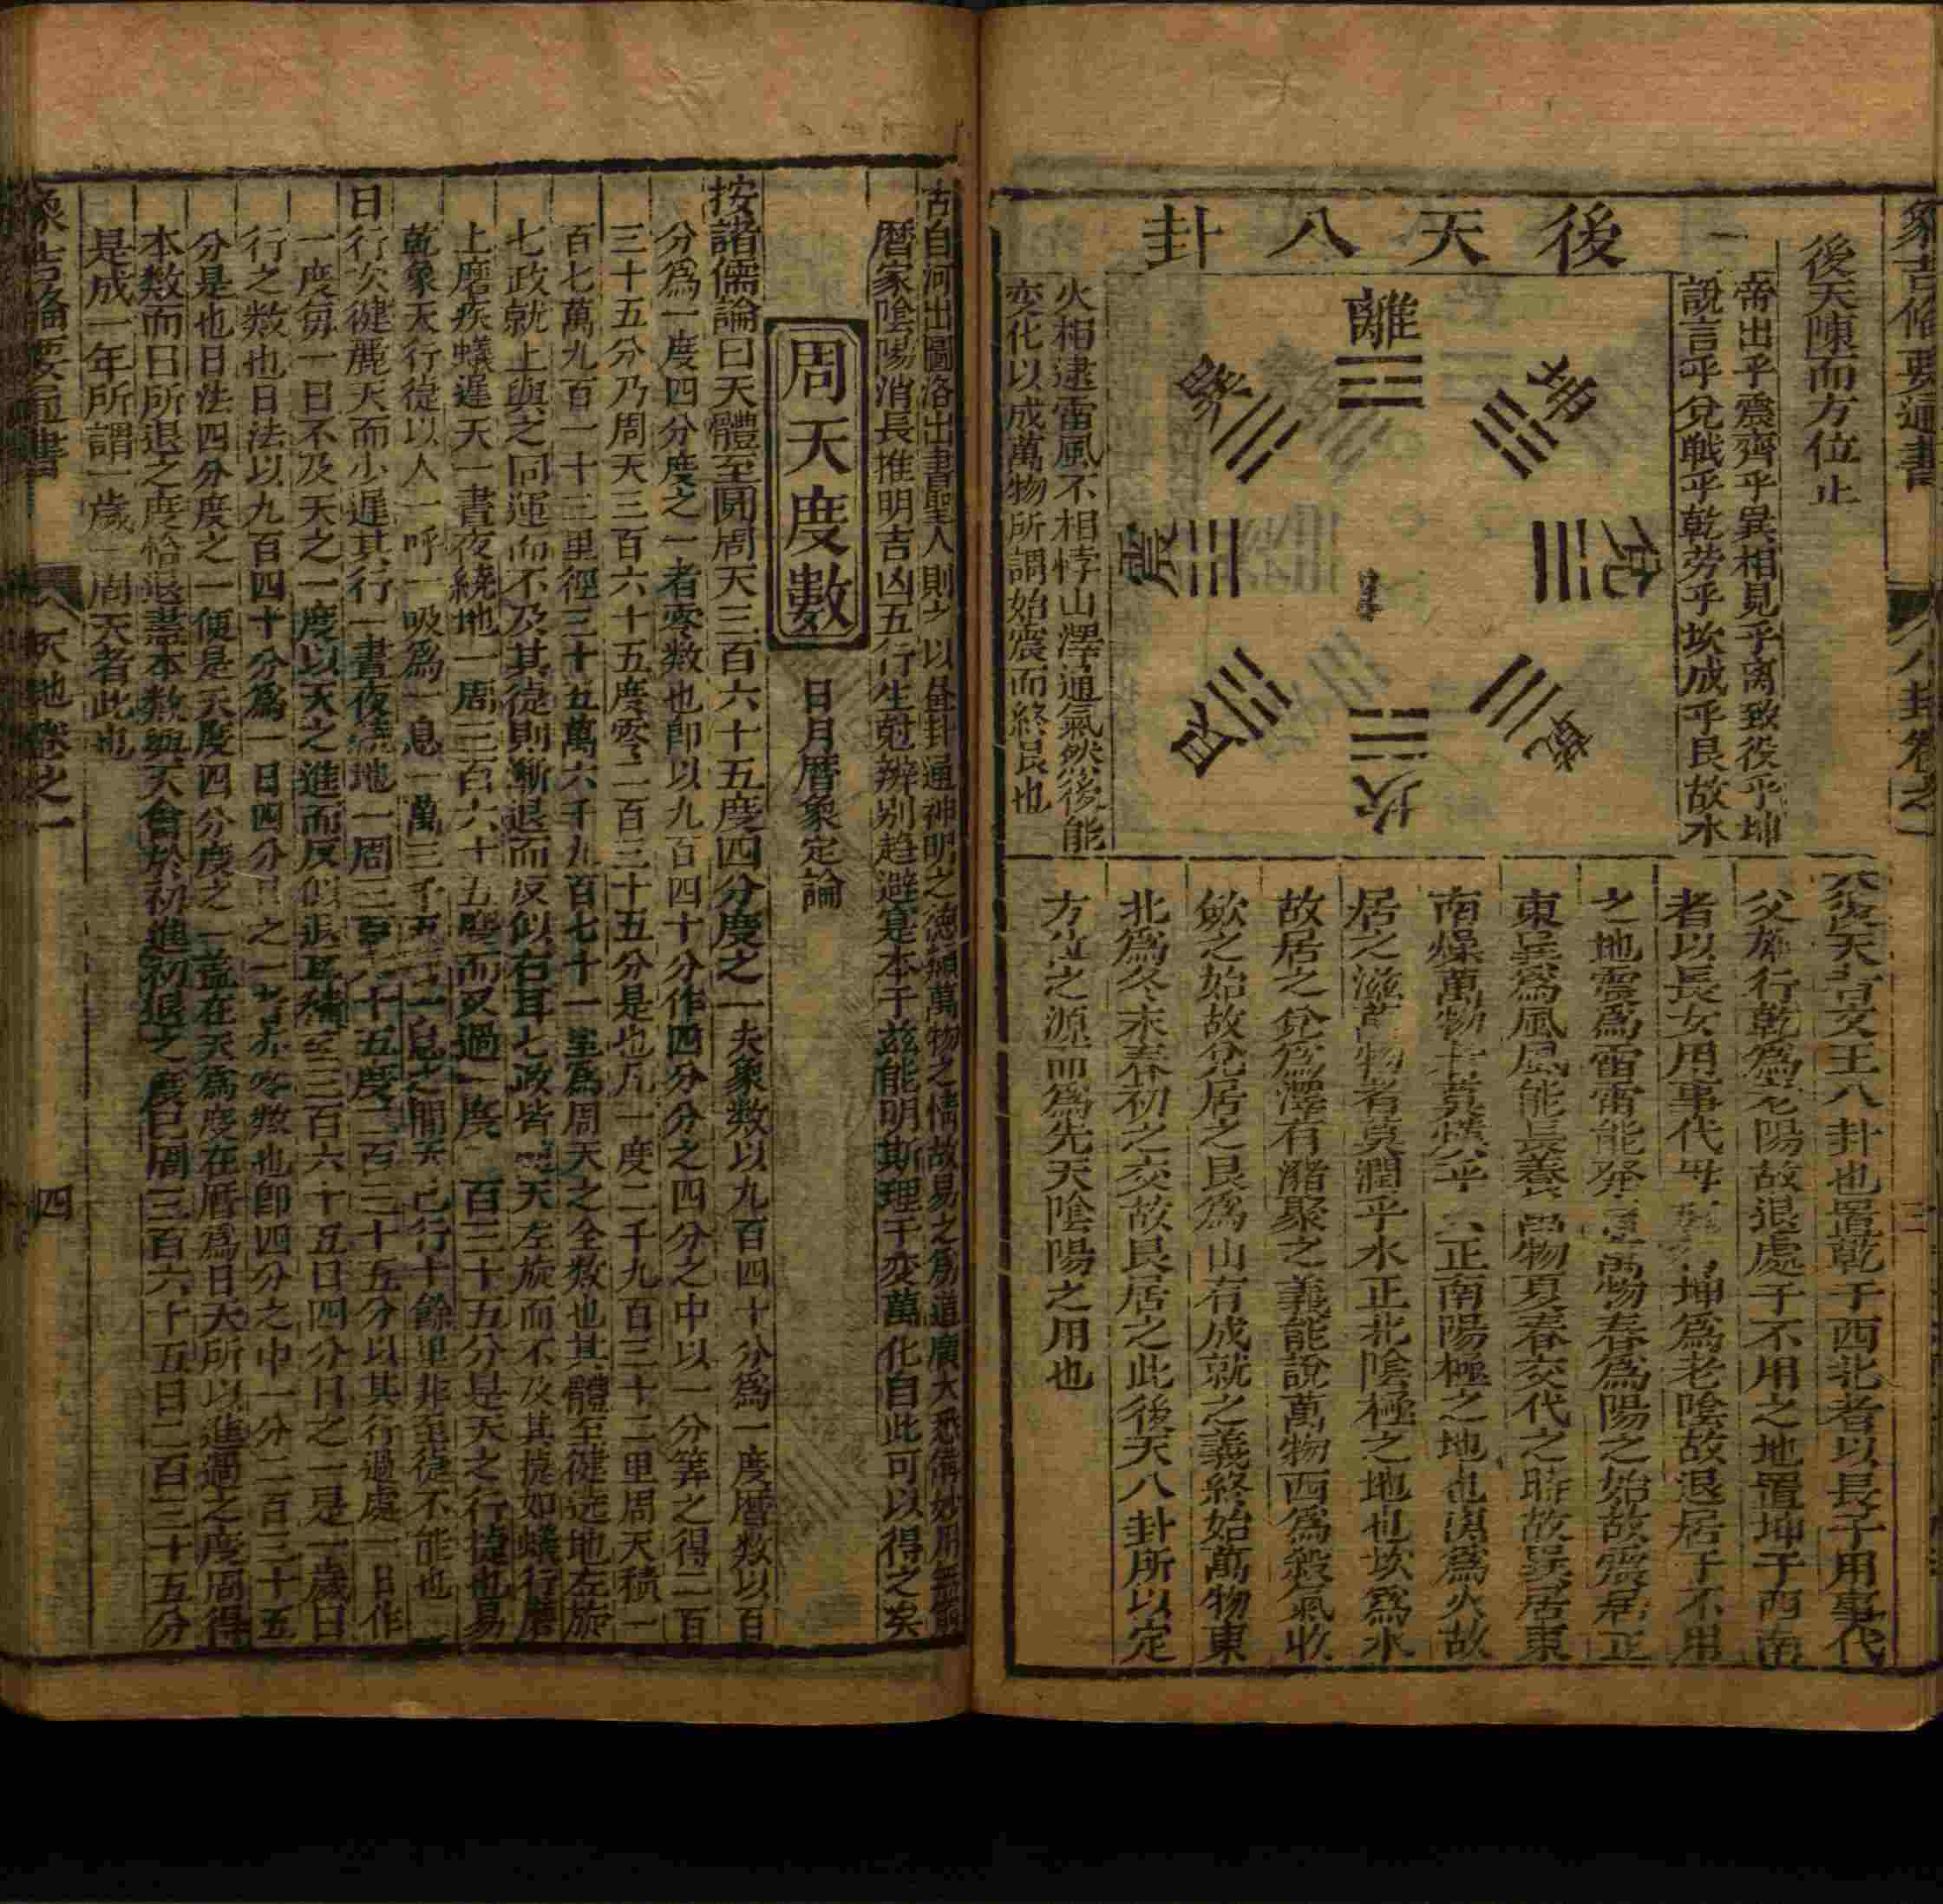 象吉備要通書
八卦卷之一
後天八卦
後天陳而方位止
帝出乎震齊乎巽相見乎离致役乎坤
說言乎兌戦乎乾劳乎坎成乎艮故水
離
坤
兌
乾
坎
艮
震
巽
火相逮雷風不相悖山澤通氣然後能
变化以成萬物所謂始震而終艮也
天者文王八卦也置乾于西北者以長子用事代
父 行乾為老陽故退處于不用之地置坤于西南
者以長女用事代 坤為老陰故退居于不用
之地震為雷雷能發 萬物春為陽之始故震居正
東巽為風風能長養萬物夏春交代之時故巽居東
南燥萬物者莫熯乎火正南陽極之地也离為火故
居之滋萬物者莫潤乎水正北陰極之地也坎為水
故居之兌為澤有瀦聚之義能說萬物西為殺氣收
斂之始故兌居之艮為山有成就之義終始萬物東
北為冬末春初之交故艮居之此後天八卦所以定
方位之源而為先天陰陽之用也
古自河出圖洛出書聖人則之以 卦通神明之德類萬物之情故易之為道廣大悉備妙用無窮
曆家陰陽消長推明吉凶五行生尅辨别趋避寔本于兹能明斯理千变萬化自此可以得之矣
周天度數
日月曆象定論
按諸儒論曰天體至圓周天三百六十五度四分度之一夫象数以九百四十分為一度曆数以百
分為一度四分度之一者零数也即以九百四十分作四分分之四分之中以一分筭之得二百
三十五分乃周天三百六十五度零二百三十五分是也凡一度二千九百三十二里周天積一
百七萬九百一十三里徑三十五萬六千九百七十一里為周天之全数也其體至健遶地左旋
七政就上與之同運而不及其徒則漸退而反似右耳七政皆 天左旋而不及其捷如蟻行磨
上磨疾蟻遲天一晝夜繞地一周三百六十五度而又過一度 百三十五分是天之行捷也易
乾象天行徒以人一呼一吸為一息一萬三千五百 一息之間天已行十餘里非至徒不能也
日行次健麗天而少遲其行一晝夜繞地一周三百六十五度二百三十五分以其行過處一日作
一度毎一日不及天之一度以天之進而反似退耳積 三百六十五日四分日之一是一歲日
行之数也日法以九百四十分為一日四分日之一者亦零数也即四分之中一分二百三十五
分是也日法四分度之一便是天度四分度之一蓋在天為度在曆為日天所以進過之度周得
本数而日所退之度恰退蓋本数與天會於初進初退之度已周三百六十五日二百三十五分
是成一年所謂一歲一周天者此也
象吉備要通書
天地卷之一
四